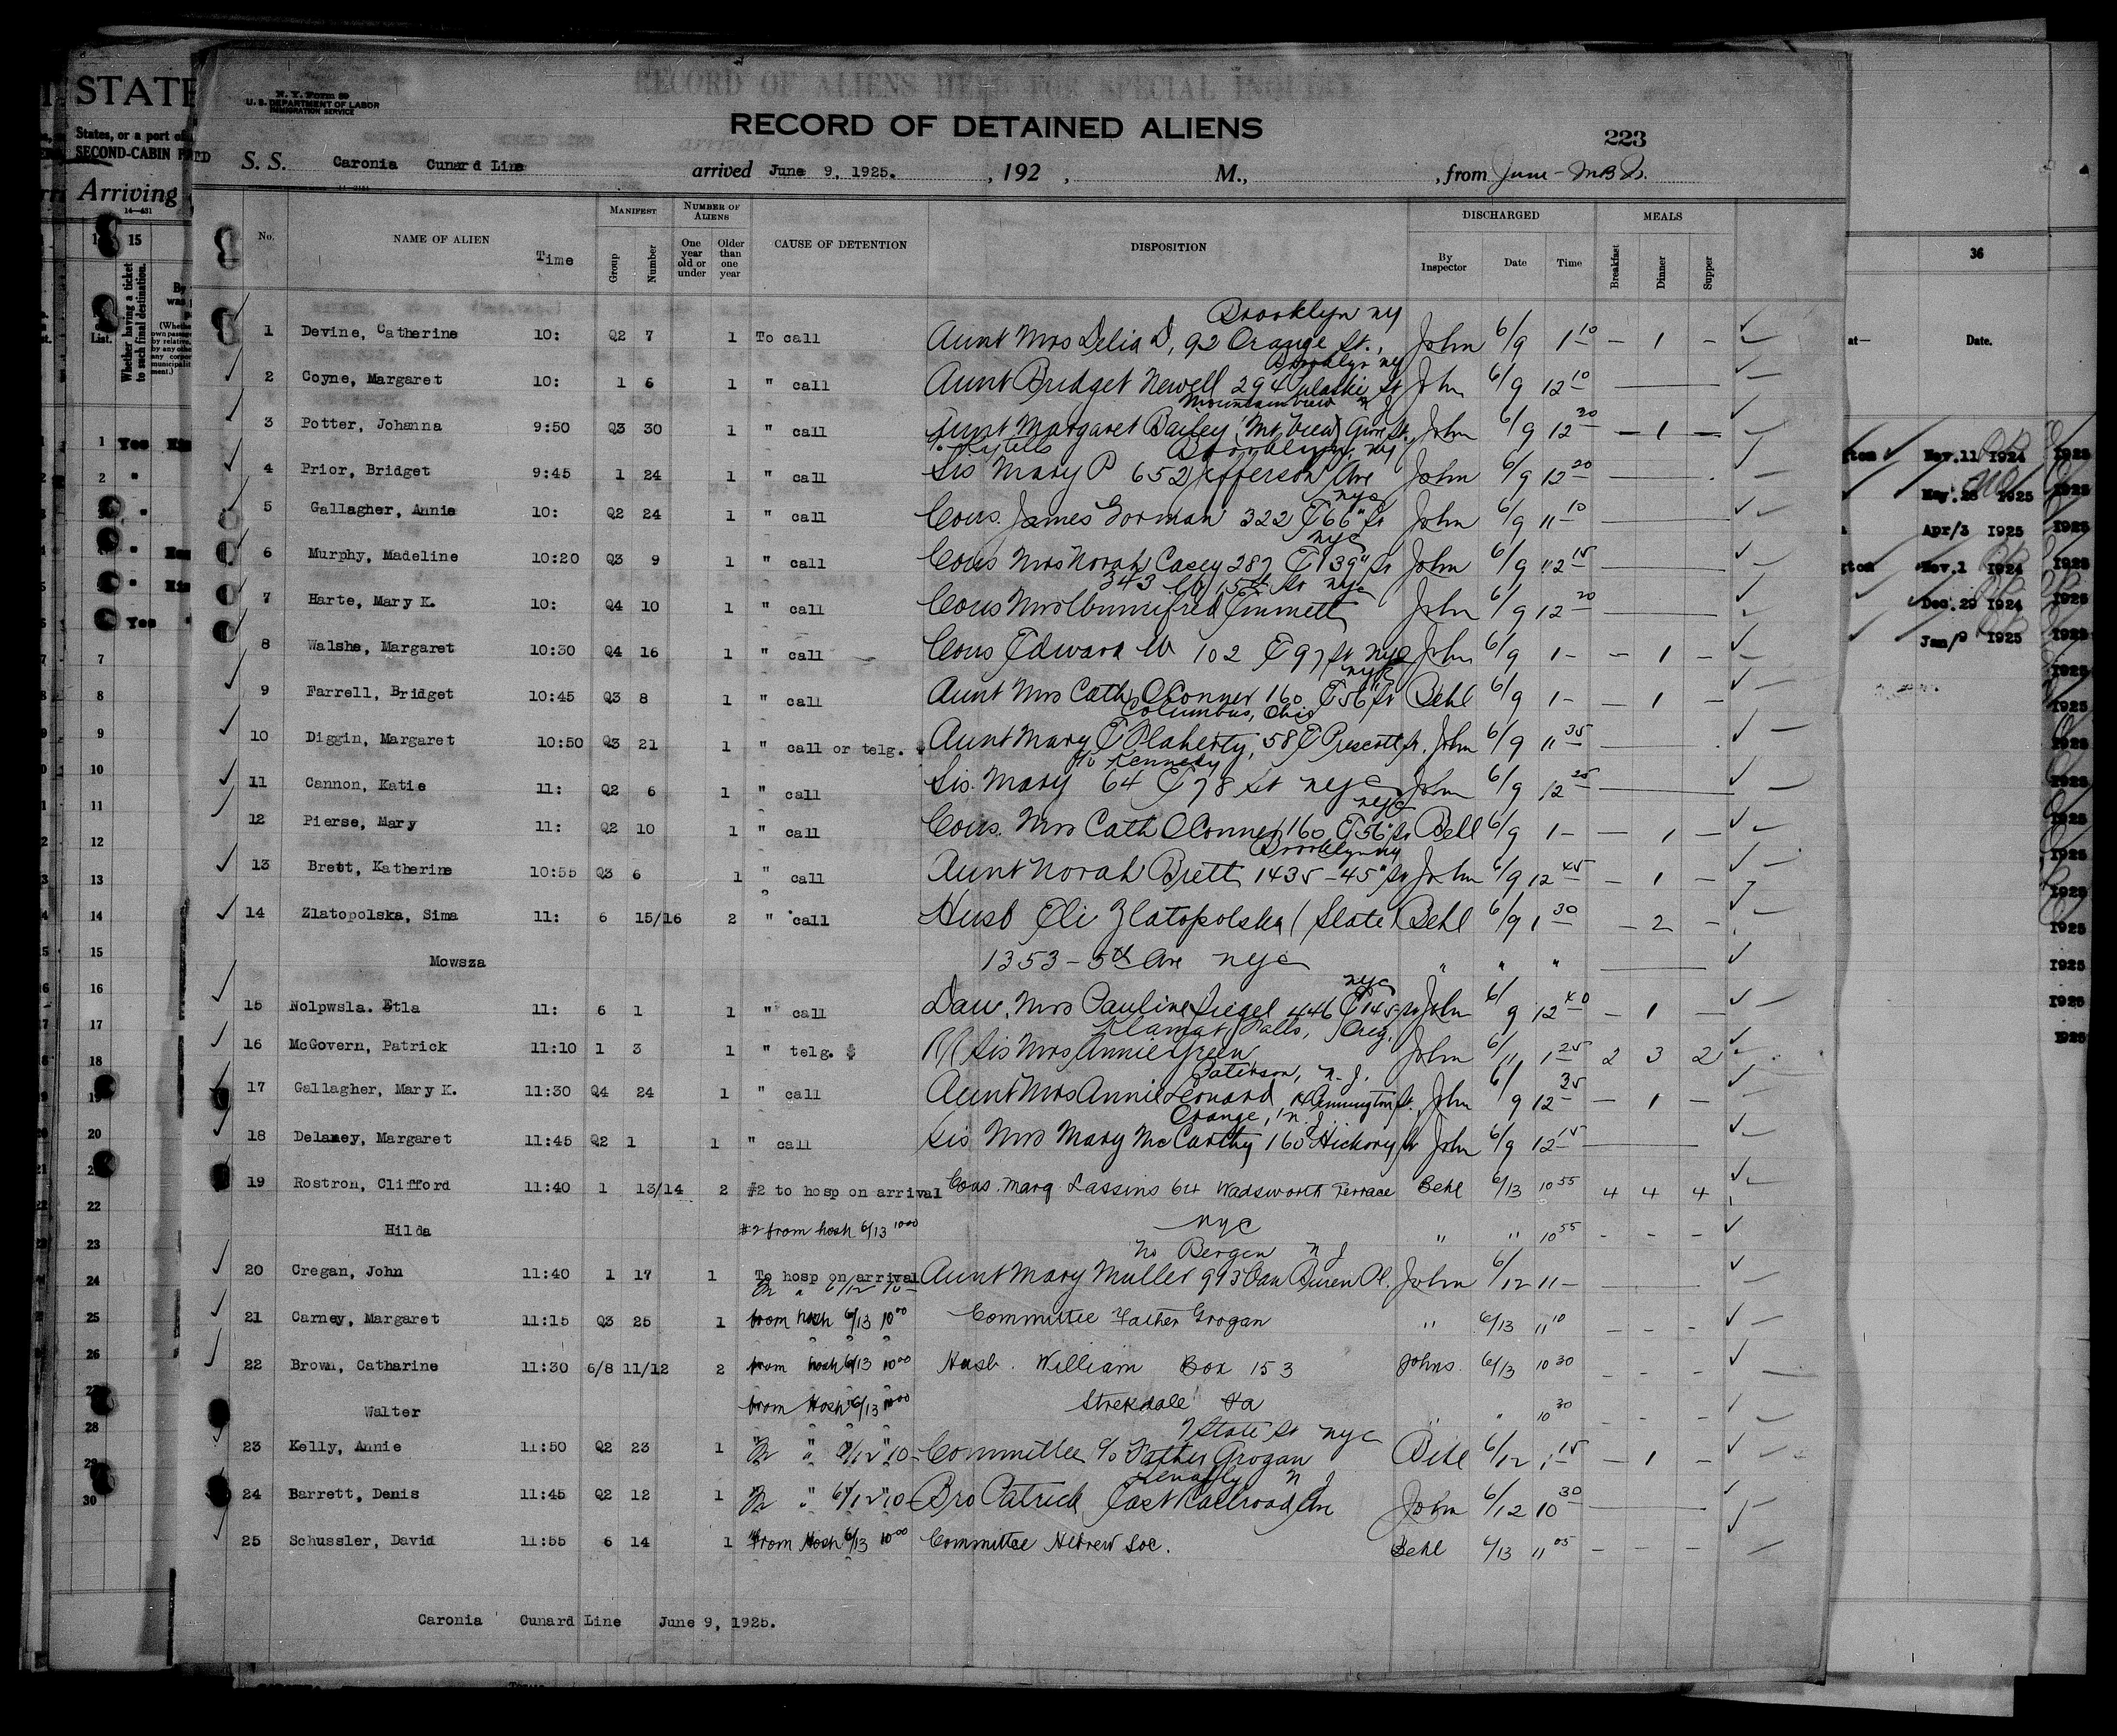 RECORD OF ALIENS HELD FOR SPECIAL INQUIRY
N. Y. Form 50
U. S. DEPARTMENT OF LABOR
IMMIGRATION SERVICE
RECORD OF DETAINED ALIENS
223
S. S. Caronia Cunard Line arrived June 9, 1925. , 192 , M., , from June
No. NAME OF ALIEN Time MANIFEST Group Number NUMBER OF ALIENS One year old or under Older than one year CAUSE OF DETENTION DISPOSITION DISCHARGED By Inspector Date Time MEALS Breakfast Dinner Supper
Brooklyn ny
1 Devine, Catherine 10: Q2 7 1 To call Aunt Mrs Delia D, 92 Orange St., John 6/9 1 10 — 1 —
Brooklyn ny
2 Coyne, Margaret 10: 1 6 1 " call Aunt Bridget Newell 294 Pulaski St John 6/9 12 10
Mountainview N J
3 Potter, Johanna 9:50 Q3 30 1 " call Aunt Margaret Bailey (Mt View) St. John 6/9 12 20 — 1 —
Brooklyn, ny
4 Prior, Bridget 9:45 1 24 1 " call Sis Mary P 652 Jefferson Ave John 6/9 12 20
nyc
5 Gallagher, Annie 10: Q2 24 1 " call Cous. James Gorman 322 E 66" St John 6/9 11 10
nyc
6 Murphy, Madeline 10:20 Q3 9 1 " call Cous Mrs Norah Casey 287 E 139" St John 6/9 12 15
343 W 15th St nyc
7 Harte, Mary K. 10: Q4 10 1 " call Cous Mrs Winnifred Emmett John 6/9 12 20
8 Walshe, Margaret 10:30 Q4 16 1 " call Cous Edward W 102 E 97 St nyc John 6/9 1- — 1 —
nyc
9 Farrell, Bridget 10:45 Q3 8 1 " call Aunt Mrs Cath OConner 160 E 56" St Behl 6/9 1- — 1 —
Columbus, Ohio
10 Diggin, Margaret 10:50 Q3 21 1 " call or telg. $ Aunt Mary E Flaherty, 58 E Prescott St. John 6/9 11 35
c/o Kennedy
11 Cannon, Katie 11: Q2 6 1 " call Sis. Mary 64 E 78 St nyc John 6/9 12 25
nyc
12 Pierse, Mary 11: Q2 10 1 " call Cous. Mrs Cath OConner 160 E 56" St Behl 6/9 1- — 1 —
Brooklyn ny
13 Brett, Katherine 10:55 Q3 6 1 " call Aunt Norah Brett 1435 - 45" St John 6/9 12 45 — 1 —
14 Zlatopolska, Sima 11: 6 15/16 2 " call Husb Eli Zlatopolska (Slate) Behl 6/9 1 30 — 2 —
Mowsza 1353 - 5th Ave nyc " " "
nyc
15 Nolpwsla. Etla 11: 6 1 1 " call Dau. Mrs Pauline Siegel 446 E 145 St John 6/9 12 40 — 1 —
Klamat Falls, Oreg.
16 McGovern, Patrick 11:10 1 3 1 " telg. $ RR Sis Mrs Annie Green John 6/11 1 25 2 3 2
Paterson, N. J.
17 Gallagher, Mary K. 11:30 Q4 24 1 " call Aunt Mrs Annie Leonard St. John 6/9 12 35 — 1 —
Orange, N J
18 Delaney, Margaret 11:45 Q2 1 1 " call Sis Mrs Mary McCarthy 160 Hickory St John 6/9 12 15
19 Rostron, Clifford 11:40 1 13/14 2 #2 to hosp on arrival Cous. Marg. Lassins 64 Wadsworth Terrace Behl 6/13 10 55 4 4 4
Hilda #2 from hosh 6/13 10 00 nyc " " 10 55 - - -
No Bergen N J
20 Cregan, John 11:40 1 17 1 To hosp on arrival Aunt Mary Muller 993 Van Buren Pl. John 6/12 11-
6/12 10-
21 Carney, Margaret 11:15 Q3 25 1 from hosh 6/13 10 00 Committee Father Grogan " 6/13 11 10 - - -
22 Brown, Catharine 11:30 6/8 11/12 2 from hosh 6/13 10 00 Husb. William Box 153 Johns. 6/13 10 30 - - -
Walter from Hosh 6/13 10 00 " " 10 30 - - -
7 State St nyc
23 Kelly, Annie 11:50 Q2 23 1 " 6/12 10- Committee c/o Father Grogan Behl 6/12 1 15 — 1 —
Tenafly N J
24 Barrett, Denis 11:45 Q2 12 1 " 6/12 10- Bro Patrick East Railroad Ave John 6/12 10 30
25 Schussler, David 11:55 6 14 1 From Hosh 6/13 10 00 Committee Hebrew Soc. Behl 6/13 11 05 - - -
Caronia Cunard Line June 9, 1925.
STATE
States, or a port of
SECOND-CABIN
Arriving
15
Whether having a ticket to such final destination.
List.
1 Yes
2 "
Yes
36
at—
Date.
Nov.11 1924
May.25 1925
Apr/3 1925
Nov.1 1924
Dec.29 1924
Jan/9 1925